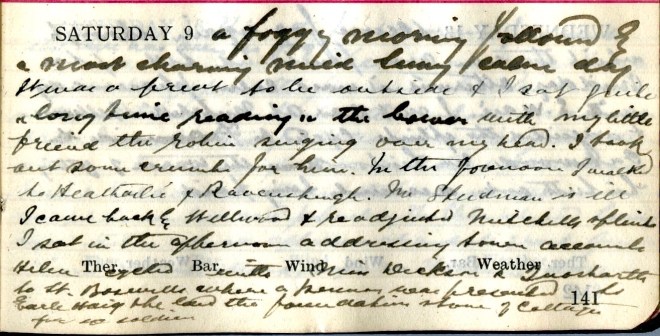 SATURDAY 9 a foggy morning followed by
a most charming mild sunny calm day
It was a treat to be outside & I sat quite
a long time reading in the bower with my little
friend the robin singing over my head. I took
out some crumbs for him. In the forenoon I walked
to Heatherlie & Ravensheugh. Mr Steedman is ill
I came back by Wellwood & readjusted Mitchell's splints
I sat in the afternoon addressing town accounts
Ther. Bar. Wind Weather
Helen cycled with Miss
to St. Boswells where a was presented to
Earl Haig & he laid the foundation stone of Cottages
for soldiers
141